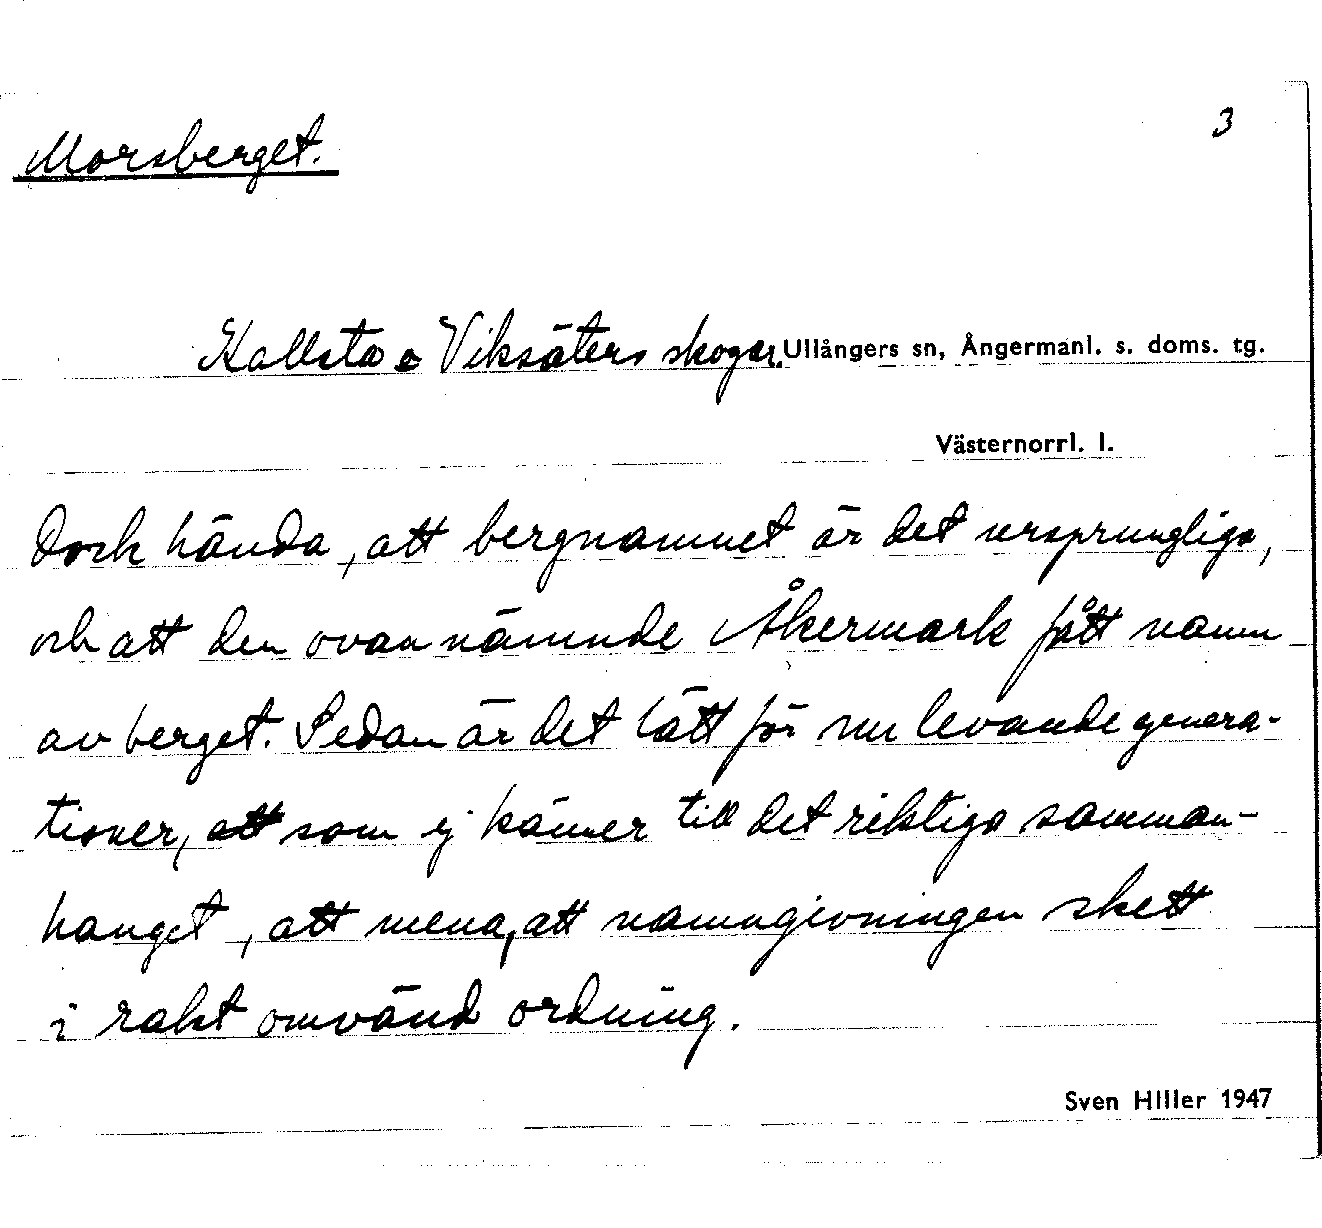 3
Morsberget.
Kallsta o Viksäters skogar. Ullångers sn, Ångermanl. s. doms. tg.
Västernorrl. l.
dock hända, att bergnamnet är det ursprungliga,
och att den ovannämnde Åkermark fått namn
av berget. Sedan är det lätt för nu levande genera-
tioner, att som ej känner till det riktiga samman-
hanget, att mena, att namngivningen skett
i rakt omvänd ordning.
Sven Hiller 1947